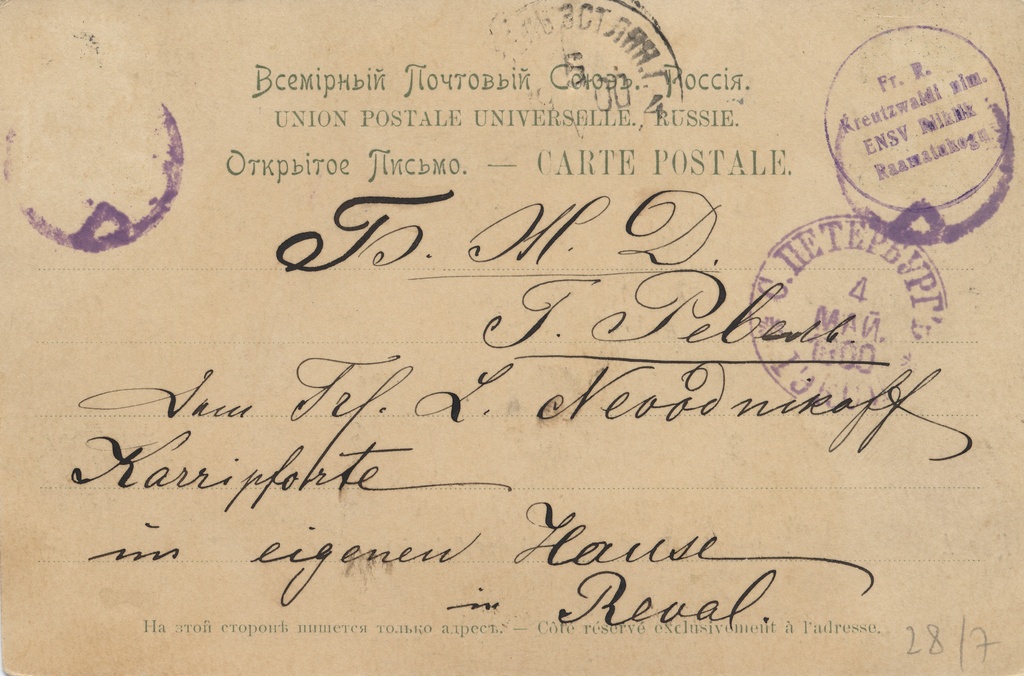 Всемірный Почтовый Союзъ. Россія.
UNION POSTALE UNIVERSELLE. RUSSIE.
Открытое Письмо. — CARTE POSTALE.
Fr. R.
Kreutzwaldi nim.
ENSV Riiklik
Raamatukogu
С. ПЕТЕРБУРГЪ
4
МАЙ.
1900
Б. Ж. Д.
Г. Ревель.
L. Nevodnikoff
Karripforte
im eigenen Hause
in Reval.
На этой сторонѣ пишется только адресъ. — Côté réservé exclusivement à l'adresse.
28/7